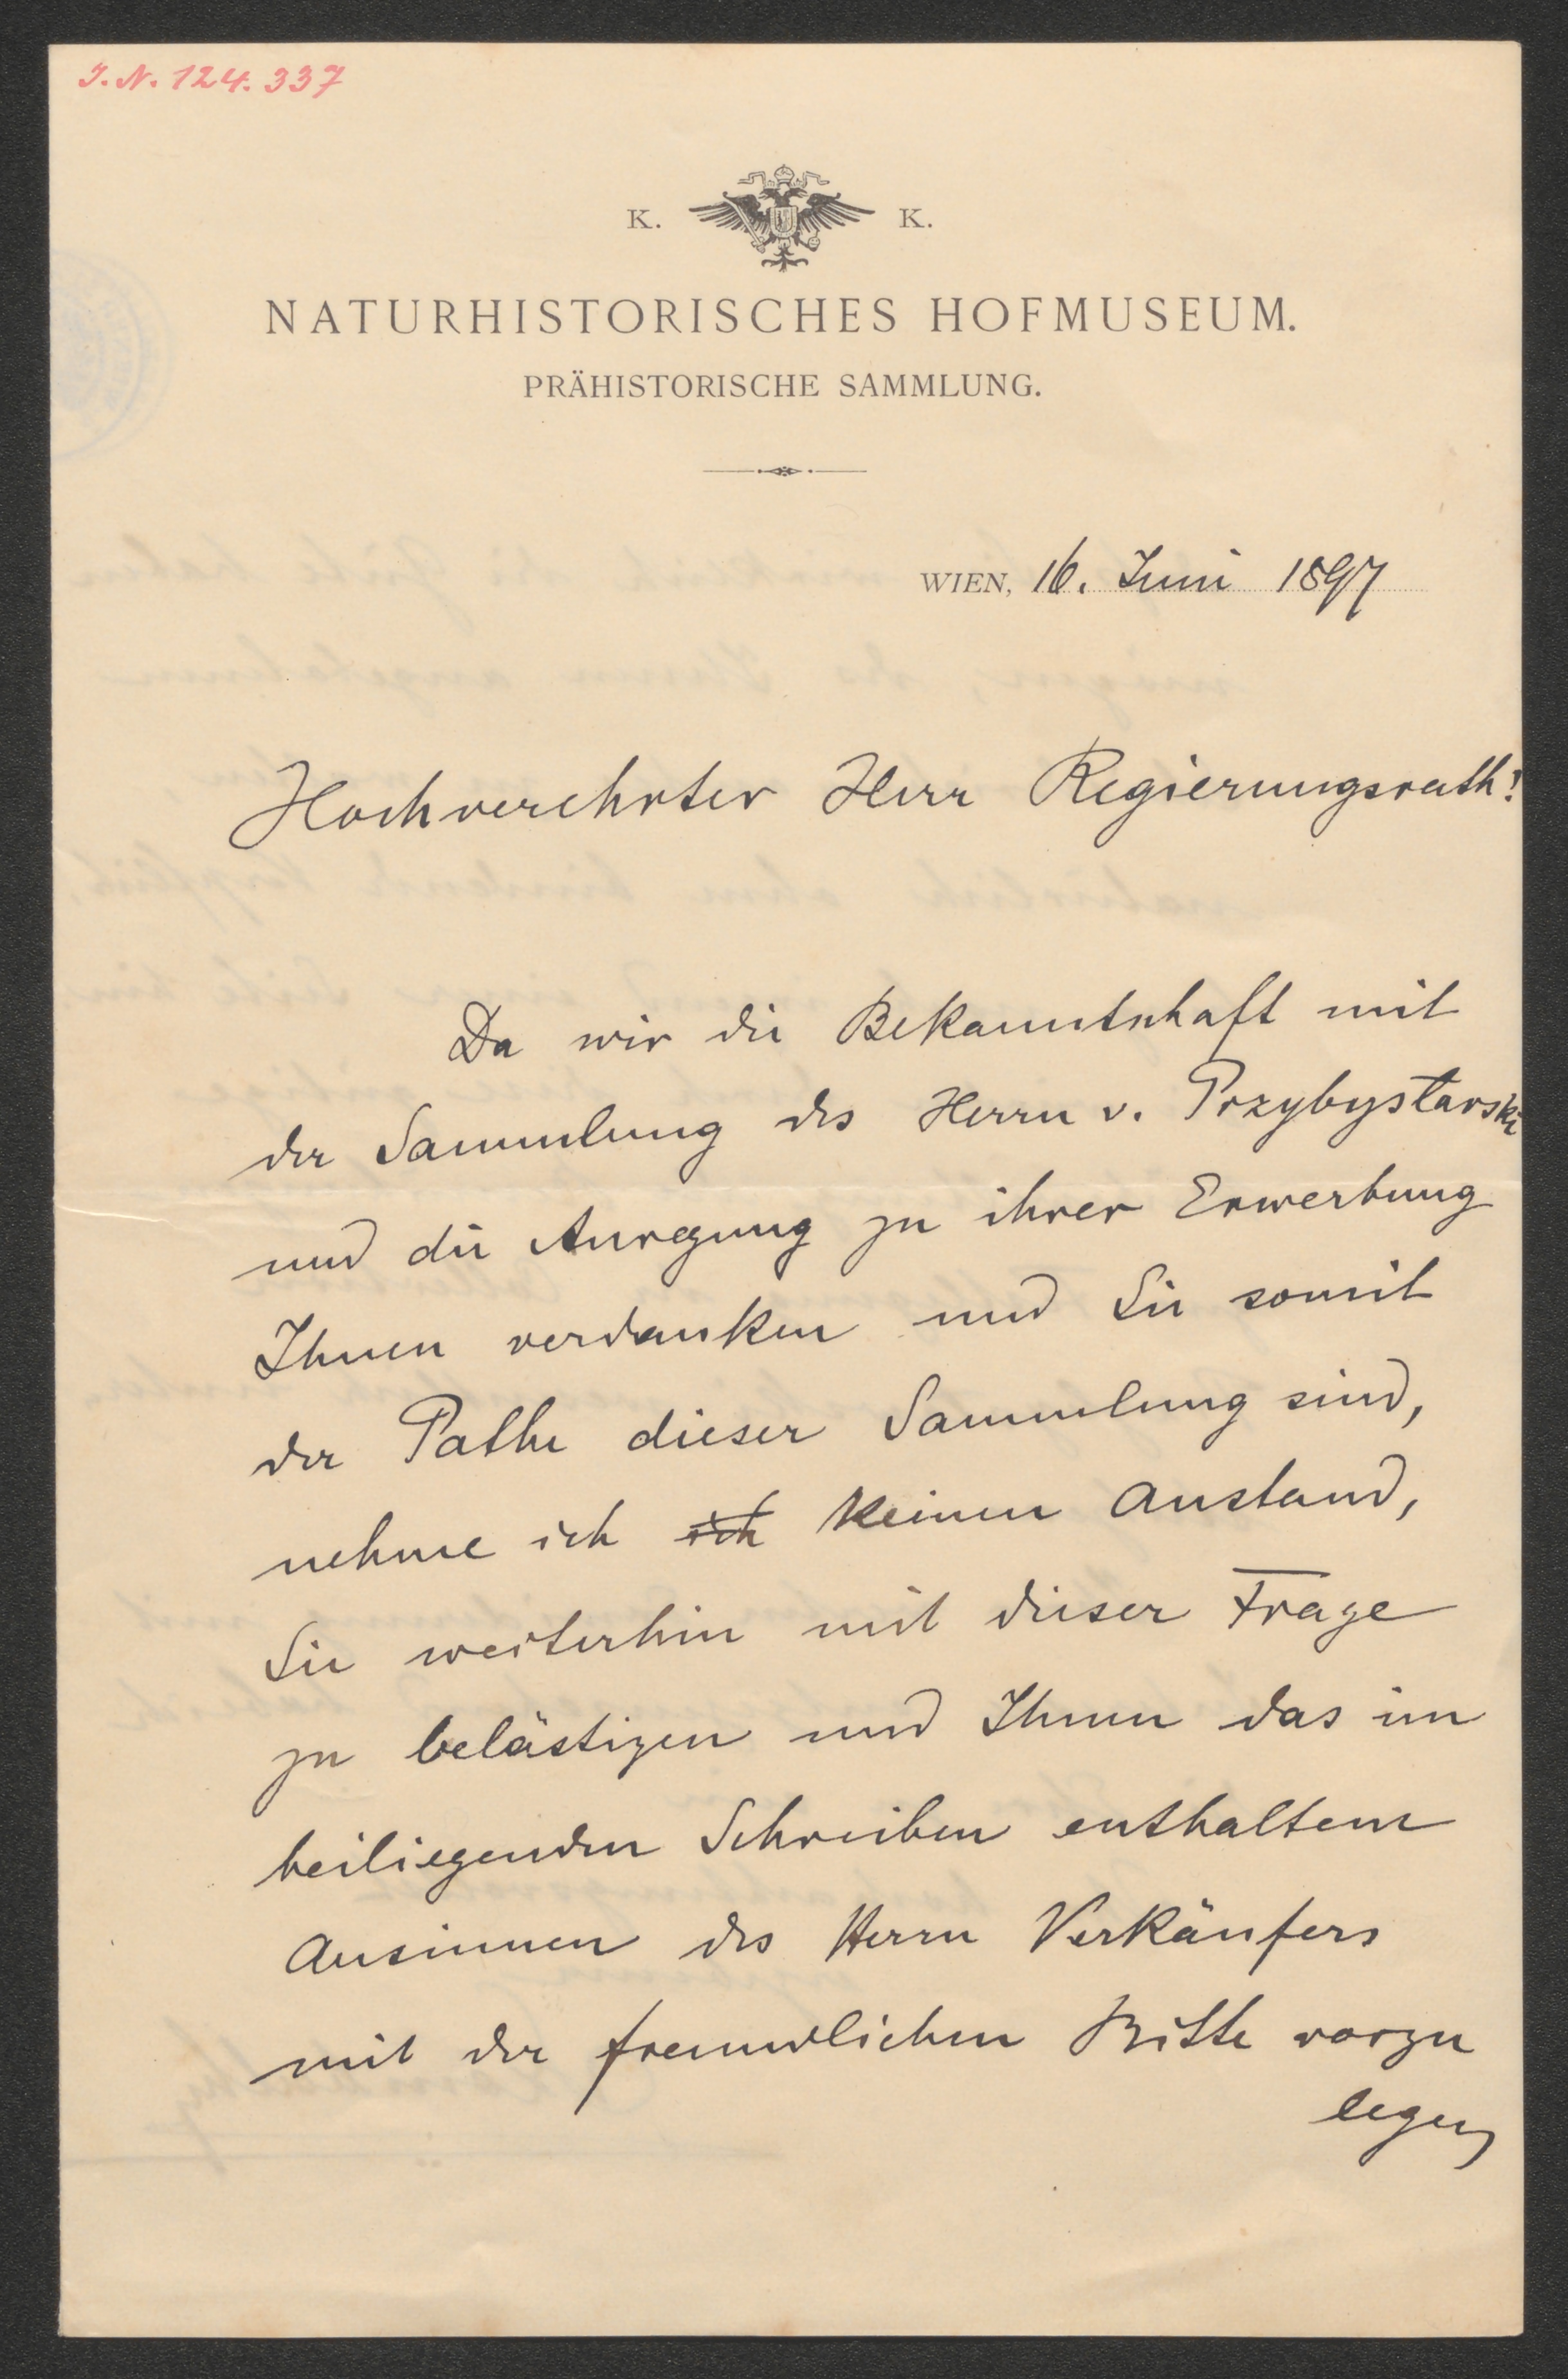 J. N. 124.337
K. K.
NATURHISTORISCHES HOFMUSEUM.
PRÄHISTORISCHE SAMMLUNG.
WIEN, 16. Juni 1897
Hochverehrter Herr Regierungsrath!
Da wir die Bekanntschaft mit
der Sammlung des Herrn v. Przybystarski
und die Anregung zu ihrer Erwerbung
Ihnen verdanken und Sie somit
der Pathe dieser Sammlung sind,
nehme ich ich keinen Anstand,
Sie weiterhin mit dieser Frage
zu belästigen und Ihnen das im
beiliegenden Schreiben enthaltene
Ansinnen des Herrn Verkäufers
mit der freundlichen Bitte vorzu
legen,